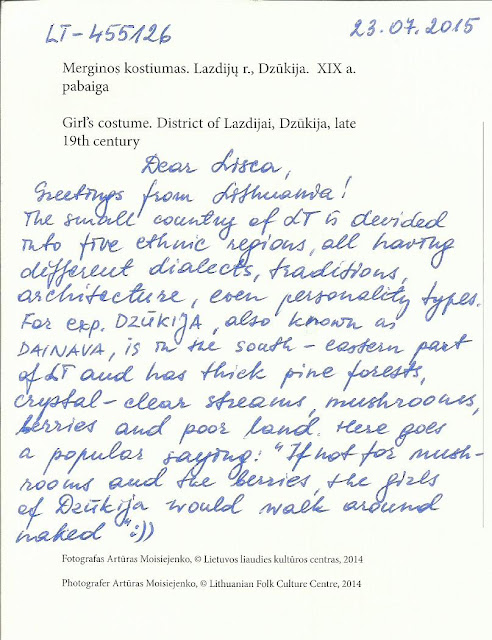 LT-455126
23.07.2015
Merginos kostiumas. Lazdijų r., Dzūkija. XIX a.
pabaiga
Girl's costume. District of Lazdijai, Dzūkija, late
19th century
Dear Lisca,
Greetings from Lithuania!
The small country of LT is devided
into five ethnic regions, all having
different dialects, traditions,
architecture, even personality types.
For exp. DZŪKIJA, also known as
DAINAVA, is in the south-eastern part
of LT and has thick pine forests,
crystal-clear streams, mushroomes,
berries and poor land. Here goes
a popular saying: "If not for mush-
rooms and the berries, the girls
of Dzūkija would walk around
naked" :))
Fotografas Artūras Moisiejenko, © Lietuvos liaudies kultūros centras, 2014
Photografer Artūras Moisiejenko, © Lithuanian Folk Culture Centre, 2014